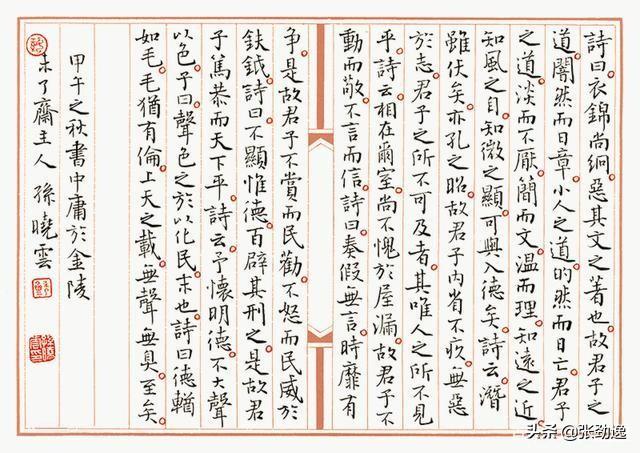 詩曰衣錦尚絅惡其文之著也故君子之
道闇然而日章小人之道的然而日亡君子
之道淡而不厭簡而文溫而理知遠之近
知風之自知微之顯可與入德矣詩云潛
雖伏矣亦孔之昭故君子內省不疚無惡
於志君子之所不可及者其唯人之所不見
乎詩云相在爾室尚不愧於屋漏故君子不
動而敬不言而信詩曰奏假無言時靡有
争是故君子不賞而民勸不怒而民威於
鈇鉞詩曰不顯惟德百辟其刑之是故君
子篤恭而天下平詩云予懷明德不大聲
以色子曰聲色之於以化民末也詩曰德輶
如毛毛猶有倫上天之載無聲無臭至矣
甲午之秋書中庸於金陵
未了齋主人孫曉雲
头条 @张劲逸